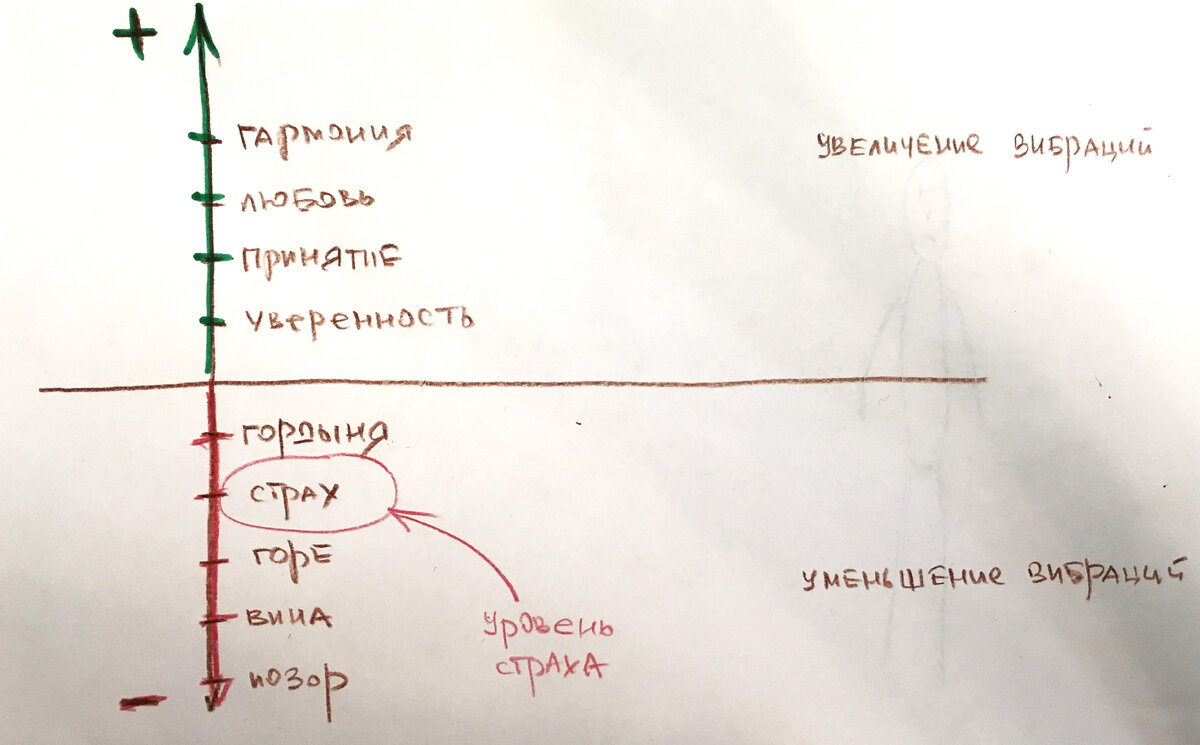 +
гармония
увеличение вибраций
любовь
принятие
уверенность
гордыня
страх
горе
уменьшение вибраций
вина
уровень
страха
позор
-